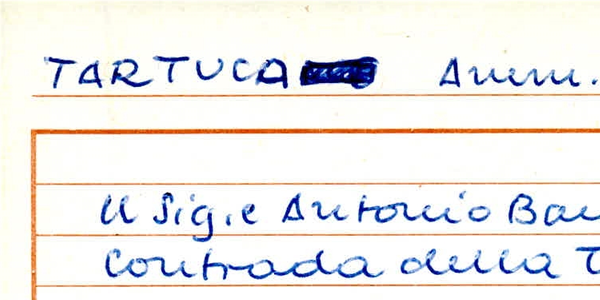 TARTUCA Amm.
Il Sig.e Antonio Ban
Contrada della T